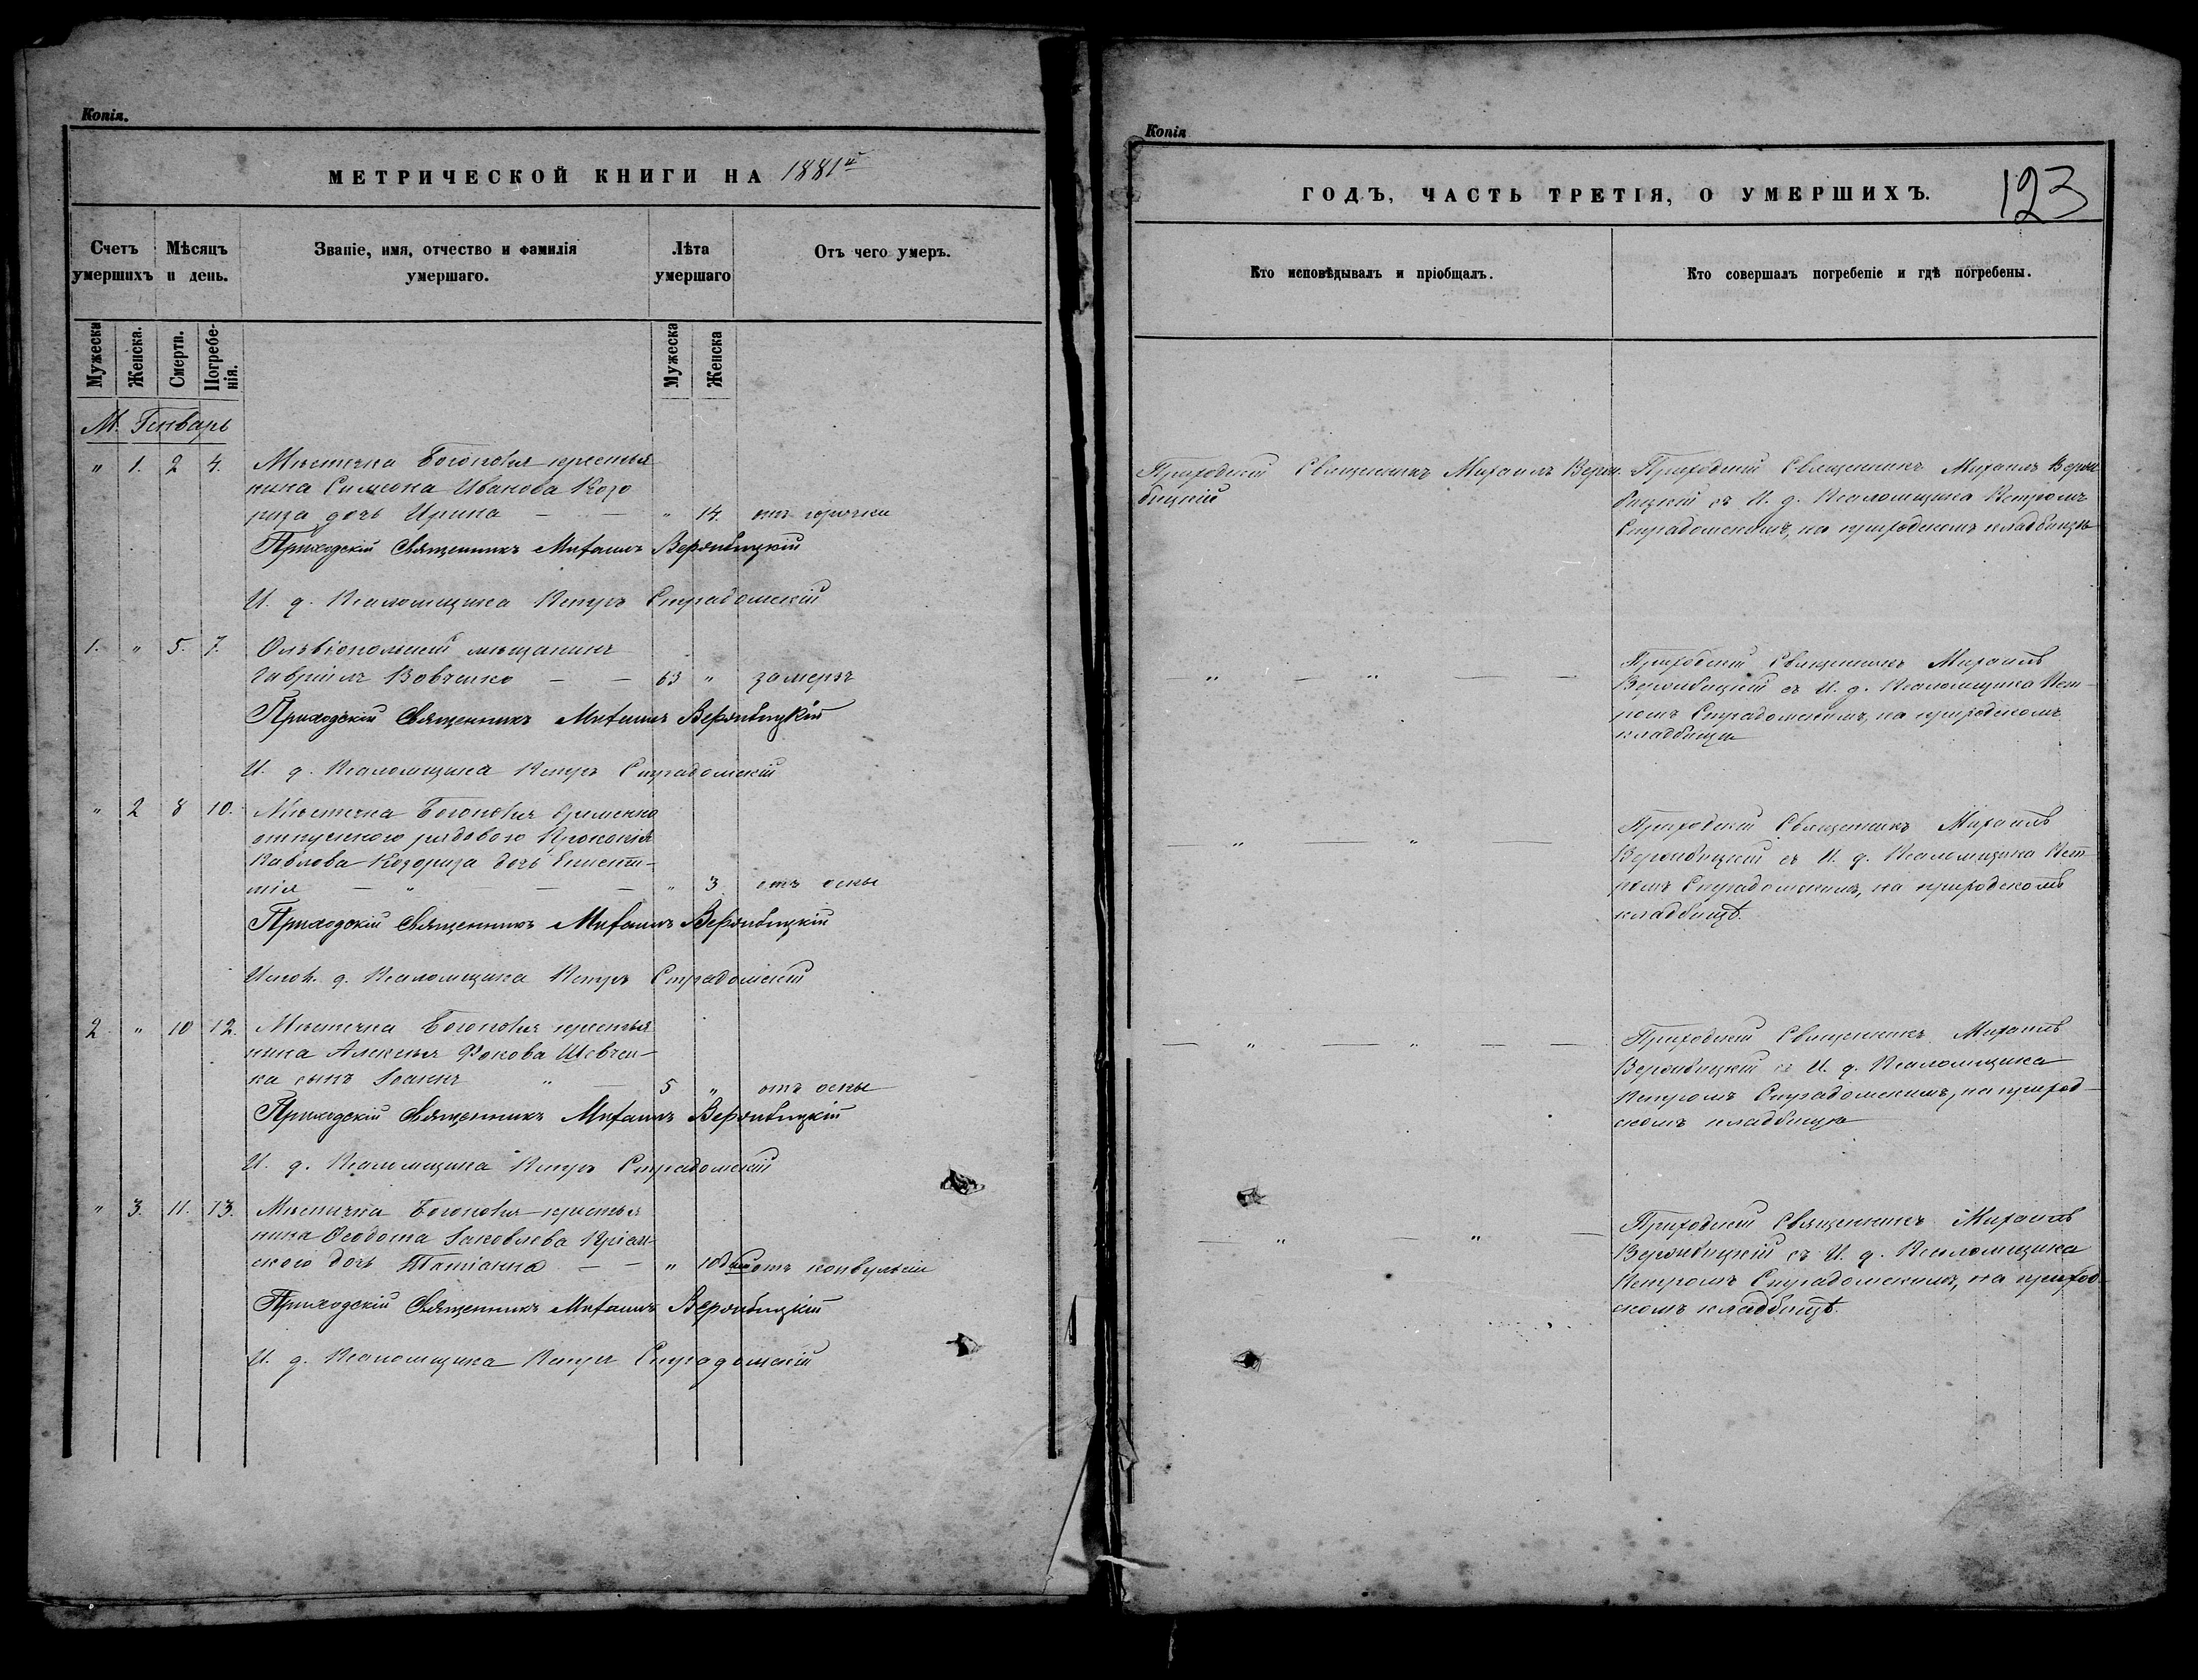 Копія.
МЕТРИЧЕСКОЙ КНИГИ НА 1881й
Счетъ умершихъ
Мѣсяцъ и день.
Званіе, имя, отчество и фамилія умершаго.
Лѣта умершаго
Отъ чего умеръ.
Мужеска
Женска.
Смерти.
Погребенія.
Мужеска
Женска
М. Генварь
" 1. 2 4. Мѣстечка Богополя крестья
нина Симеона Иванова Козо
риза дочь Ирина — — " 14. отъ горячки
Приходскій Священникъ Михаилъ Вержбицкій
И. д. Псаломщика Петръ Страдомскій
1. " 5. 7. Ольвіопольскій мѣщанинъ
Гавріилъ Вовченко — — 63 " замерзъ
Приходскій Священникъ Михаилъ Вержбицкій
И. д. Псаломщика Петръ Страдомскій
" 2 8 10. Мѣстечка Богополя временно
отпускного рядового Прокопія
Павлова Козориза дочь
" 3 отъ оспы
Приходскій Священникъ Михаилъ Вержбицкій
Испол. д. Псаломщика Петръ Страдомскій
2 " 10 12. Мѣстечка Богополя крестья
нина Алексѣя Фокова Шевчен-
ка сынъ Іоаннъ " — 5 " отъ оспы
Приходскій Священникъ Михаилъ Вержбицкій
И. д. Псаломщика Петръ Страдомскій
" 3. 11. 13. Мѣстечка Богополя крестья
нина Ѳеодота Іаковлева
ского дочь Татіанна — — " 10 дней отъ конвульсіи
Приходскій Священникъ Михаилъ Вержбицкій
И. д. Псаломщика Петръ Страдомскій
Копія
ГОДЪ, ЧАСТЬ ТРЕТІЯ, О УМЕРШИХЪ.
123
Кто исповѣдывалъ и пріобщалъ.
Кто совершалъ погребеніе и гдѣ погребены.
Приходскій Священникъ Михаилъ Верж
бицкій
Приходскій Священникъ Михаилъ Верж
бицкій съ И. д. Псаломщика Петромъ
Страдомскимъ, на приходскомъ кладбищѣ
" — " — —
Приходскій Священникъ Михаилъ
Вержбицкій съ И. д. Псаломщика Пет-
ромъ Страдомскимъ, на приходскомъ
кладбищѣ
— " — " —
Приходскій Священникъ Михаилъ
Вержбицкій съ И. д. Псаломщика Пет-
ромъ Страдомскимъ, на приходскомъ
кладбищѣ.
— " — " — —
Приходскій Священникъ Михаилъ
Вержбицкій съ И. д. Псаломщика
Петромъ Страдомскимъ, на приход-
скомъ кладбищѣ
— " — " —
Приходскій Священникъ Михаилъ
Вержбицкій съ И. д. Псаломщика
Петромъ Страдомскимъ, на приход-
скомъ кладбищѣ.